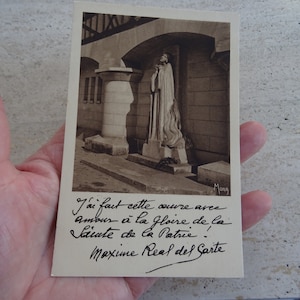 Mona
J'ai fait cette œuvre avec
amour à la gloire de la
Sainte de la Patrie.
Maxime Real del Sarte